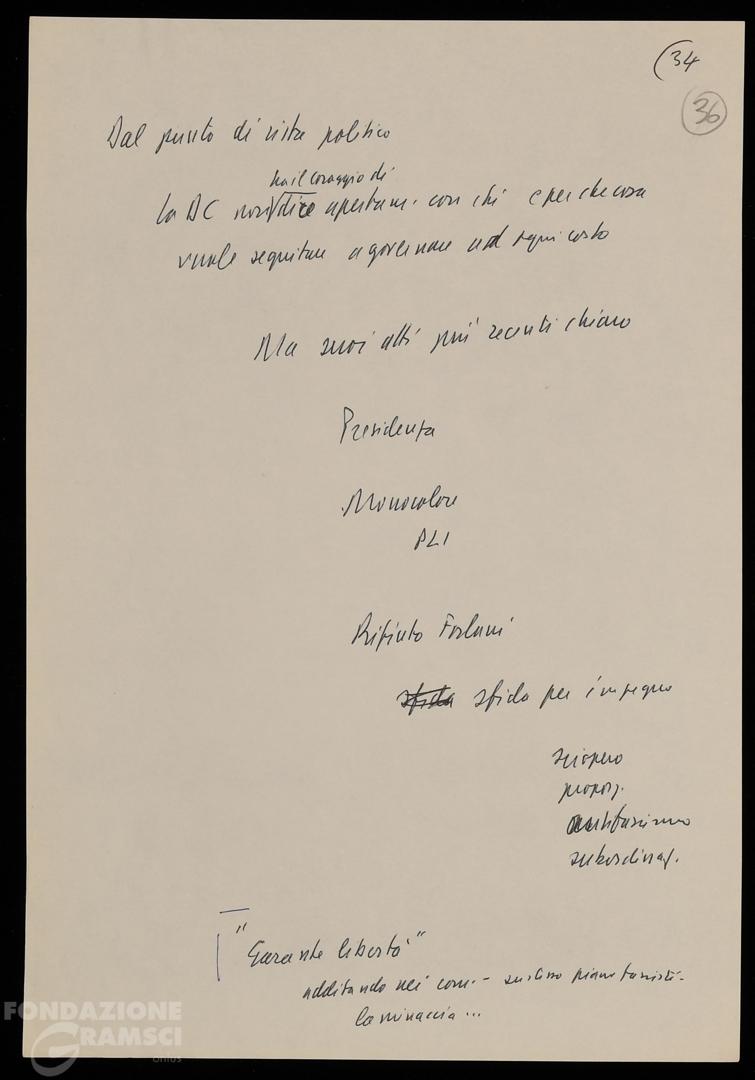 (34
36
Dal punto di vista politico
ha il coraggio di
la DC non dice apertam. con chi e perché cosa
vuole seguitare a governare ad ogni costo
Ma suoi atti più recenti chiaro
Presidenza
Monocolore
PLI
Rifiuto Forlani
sfida sfida per impegno
sciopero
propoz.
antifascismo
subordinaz.
"Garante libertà"
additando nei com. - su stesso piano fascisti -
la minaccia ...
FONDAZIONE
GRAMSCI
onlus